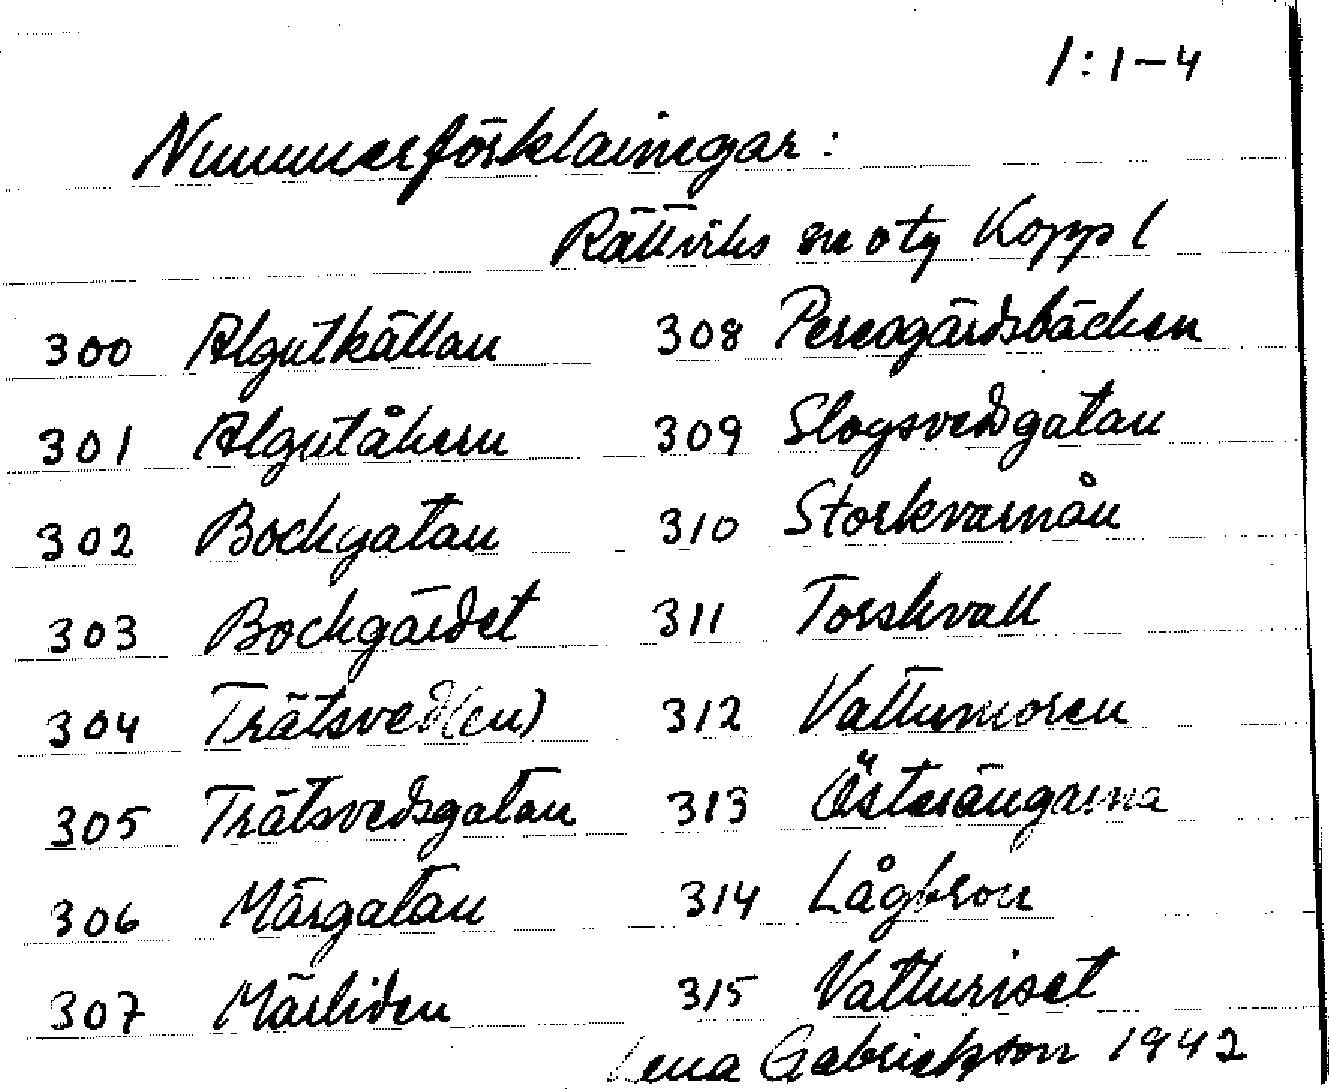 1:1-4
Nummerförklaringar:
Rättviks sn o tg Koppl
300 Algutkällan 308 Persgärdsbäcken
301 Algutåkern 309 Slogsvedsgatan
302 Bockgatan 310 Storkvarnån
303 Bockgärdet 311 Torskvall
304 Trätsved(en) 312 Vattumoren
305 Trätsvedsgatan 313 Österängarna
306 Märgatan 314 Lågbron
307 Märliden 315 Vatturiset
Lena Gabrielsson 1942